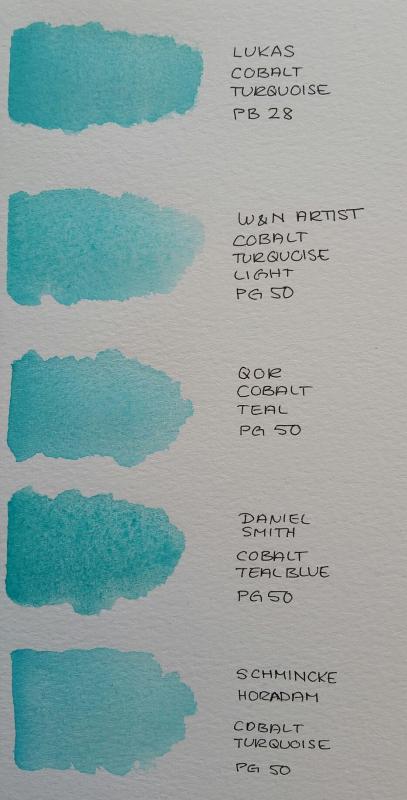 LUKAS
COBALT
TURQUOISE
PB 28
W&N ARTIST
COBALT
TURQUOISE
LIGHT
PG 50
QOR
COBALT
TEAL
PG 50
DANIEL
SMITH
COBALT
TEAL BLUE
PG 50
SCHMINCKE
HORADAM
COBALT
TURQUOISE
PG 50